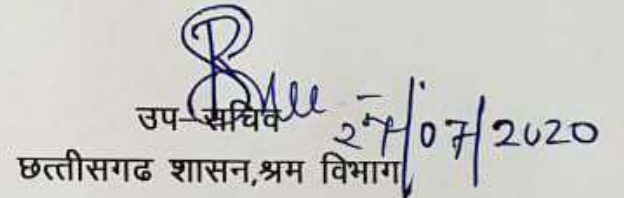 उप-सचिव
27/07/2020
छत्तीसगढ शासन,श्रम विभाग